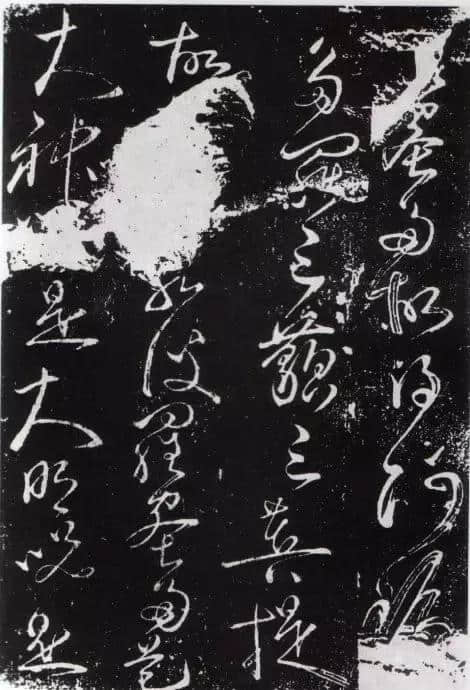 蜜多故得阿耨
多羅三藐三菩提
故若波羅蜜多是
大神是大明咒是